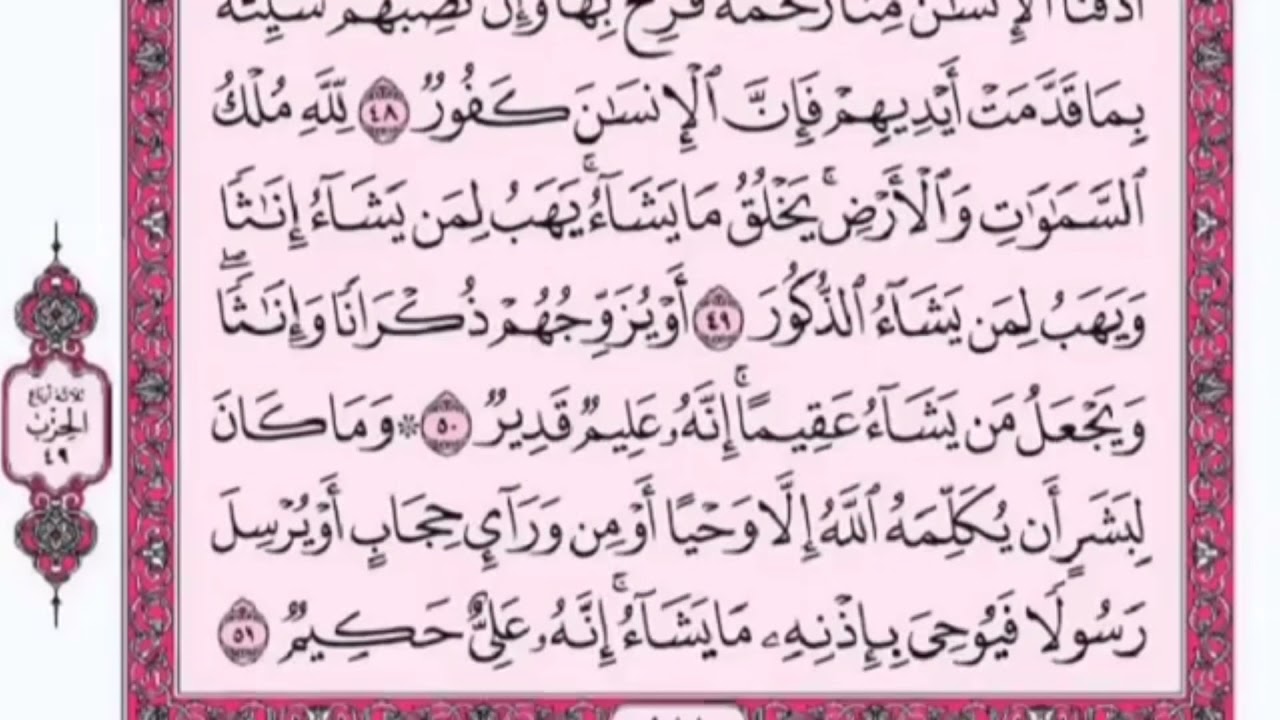 أَذَقْنَا ٱلْإِنسَٰنَ مِنَّا رَحْمَةً فَرِحَ بِهَا وَإِن تُصِبْهُمْ سَيِّئَةٌۢ
بِمَا قَدَّمَتْ أَيْدِيهِمْ فَإِنَّ ٱلْإِنسَٰنَ كَفُورٌ ٤٨ لِّلَّهِ مُلْكُ
ٱلسَّمَٰوَٰتِ وَٱلْأَرْضِۚ يَخْلُقُ مَا يَشَآءُۚ يَهَبُ لِمَن يَشَآءُ إِنَٰثًا
وَيَهَبُ لِمَن يَشَآءُ ٱلذُّكُورَ ٤٩ أَوْ يُزَوِّجُهُمْ ذُكْرَانًا وَإِنَٰثًاۖ
وَيَجْعَلُ مَن يَشَآءُ عَقِيمًاۚ إِنَّهُۥ عَلِيمٌ قَدِيرٌ ٥٠ ۞ وَمَا كَانَ
لِبَشَرٍ أَن يُكَلِّمَهُ ٱللَّهُ إِلَّا وَحْيًا أَوْ مِن وَرَآئِ حِجَابٍ أَوْ يُرْسِلَ
رَسُولًا فَيُوحِىَ بِإِذْنِهِۦ مَا يَشَآءُۚ إِنَّهُۥ عَلِىٌّ حَكِيمٌ ٥١
ثلاثة أرباع
الحزب
٤٩